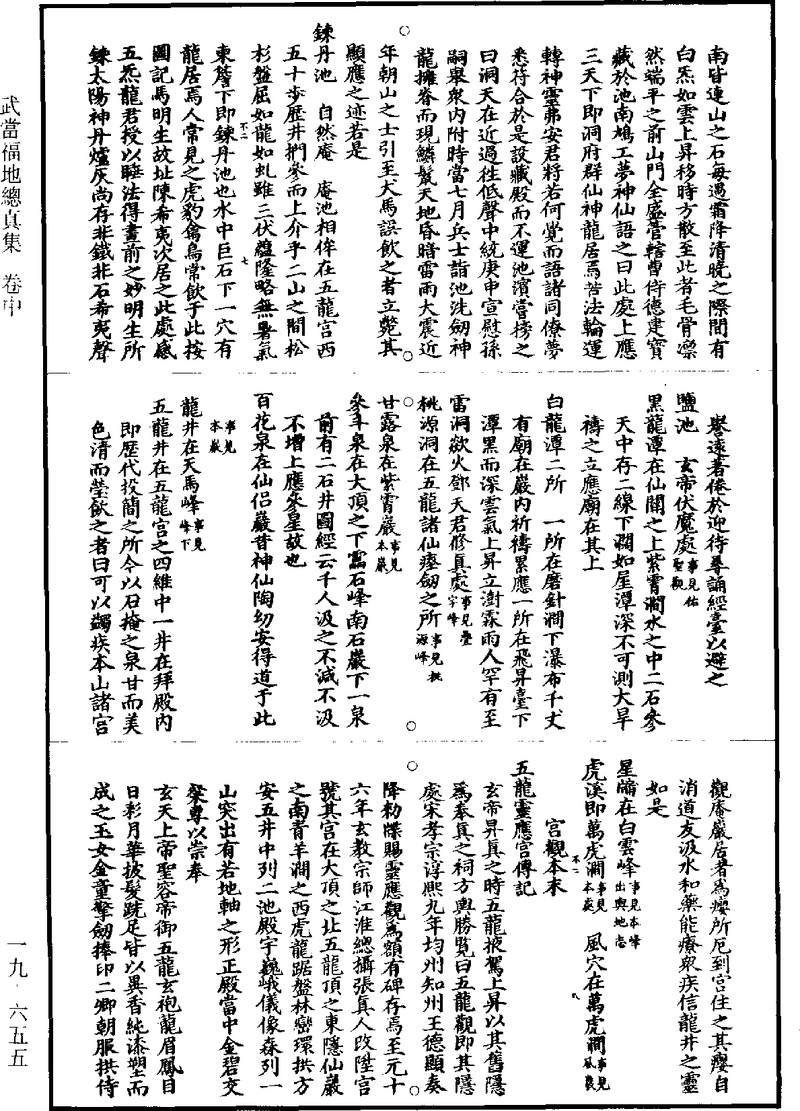 武當福地總真集　卷中
南皆連山之石每遇霜降清曉之際間有
白炁如雲上昇移時方散至此者毛骨凜
然端平之前山門全盛管轄曹侍德建寶
藏於池南鳩工夢神仙語之曰此處上應
三天下即洞府群仙神龍居焉苦法輪運
轉神靈弗安君將若何覺而語諸同僚夢
悉符合於是設藏殿而不運池濱嘗榜之
曰洞天在近過往低聲中統庚申宣慰孫
嗣舉眾內附時當七月兵士詣池洗劒神
龍擁脊而現鱗鬣天地昏暗雷雨大震近
年朝山之士引至大馬誤飲之者立斃其
顯應之迹若是
鍊丹池　自然庵　庵池相侔在五龍宮西
五十步歷井捫參而上介乎二山之間松
杉盤屈如龍如虬雖三伏蘊隆略無暑氣
東簷下即鍊丹池也水中巨石下一穴有
不二　七
龍居焉人常見之虎豹禽鳥常飲于此按
圖記馬明生故址陳希夷次居之此處感
五炁龍君授以睡法得畫前之妙明生所
鍊太陽神丹爐灰尚存非鐵非石希夷聲
譽遠著倦於迎待尋誦經臺以避之
鹽池　玄帝伏魔處事見佑聖觀
黑龍潭在仙關之上紫霄澗水之中二石參
天中存二線下濶如屋潭深不可測大旱
禱之立應廟在其上
白龍潭二所　一所在磨針澗下瀑布千丈
有廟在巖內祈禱累應一所在飛昇臺下
潭黑而深雲氣上昇立澍霖雨人罕有至
雷洞欻火鄧天君修真處事見疊字峰
桃源洞在五龍諸仙瘞劒之所事見桃源峰
甘露泉在紫霄巖事見本巖
參斗泉在大頂之下靄石峰南石巖下一泉
前有二石井圖經云千人汲之不減不汲
不增上應參星故也
百花泉在仙侶巖昔神仙陶幼安得道于此
事見本巖
龍井在天馬峰事見峰下
五龍井在五龍宮之四維中一井在拜殿內
即歷代投簡之所今以石掩之泉甘而美
色清而瑩飲之者曰可以蠲疾本山諸宮
觀庵巖居者爲瘿所厄到宮住之其瘿自
消道友汲水和藥能療衆疾信龍井之靈
如是
星牖在白雲峰事見本峰出輿地志
虎溪即萬虎澗事見本巖　風穴在萬虎澗事見風巖
不二　八
宮觀本末
五龍靈應宮傳記
玄帝昇真之時五龍掖駕上昇以其舊隱
爲奉真之祠方輿勝覧曰五龍觀即其隱
處宋孝宗淳熙九年均州知州王德顯奏
降勅牒賜靈應觀爲額有碑存焉至元十
六年玄教宗師江淮總攝張真人改陞宮
號其宮在大頂之北五龍頂之東隱仙巖
之南青羊澗之西虎龍踞盤林巒環拱方
安五井中列二池殿宇巍峨儀像森列一
山突出有若地軸之形正殿當中金碧交
粲專以崇奉
玄天上帝聖容帝御五龍玄袍龍眉鳳目
日彩月華披髮跣足皆以異香純漆塑而
成之玉女金童擎劒捧印二卿朝服拱侍
一九·六五五